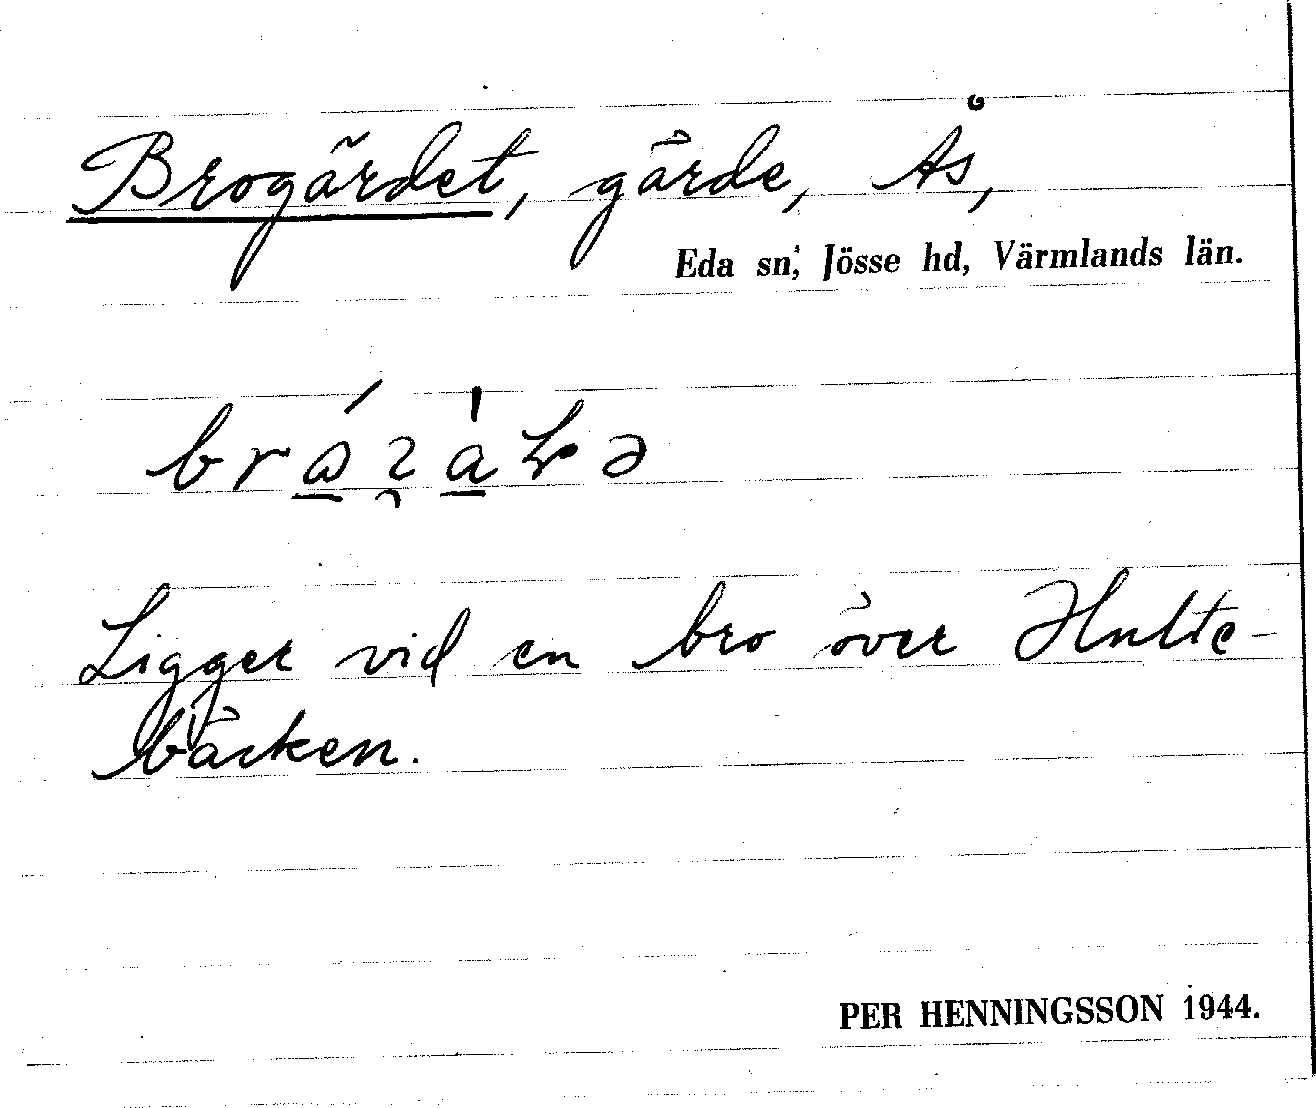 Brogärdet, gärde, Ås,
Eda sn, Jösse hd, Värmlands län.
Ligger vid en bro över Hulte-
bäcken.
PER HENNINGSSON 1944.